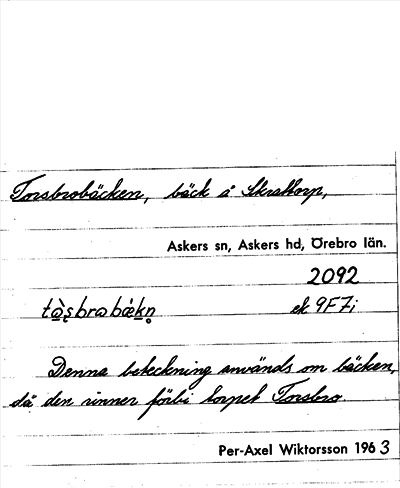 Torsbrobäcken, bäck å Skrattorp,
Askers sn, Askers hd, Örebro län.
2092
tɷ̀ʂbrɷbæ̀kn̥ ek 9F7i
Denna beteckning används om bäcken,
då den rinner förbi torpet Torsbro
Per-Axel Wiktorsson 1963